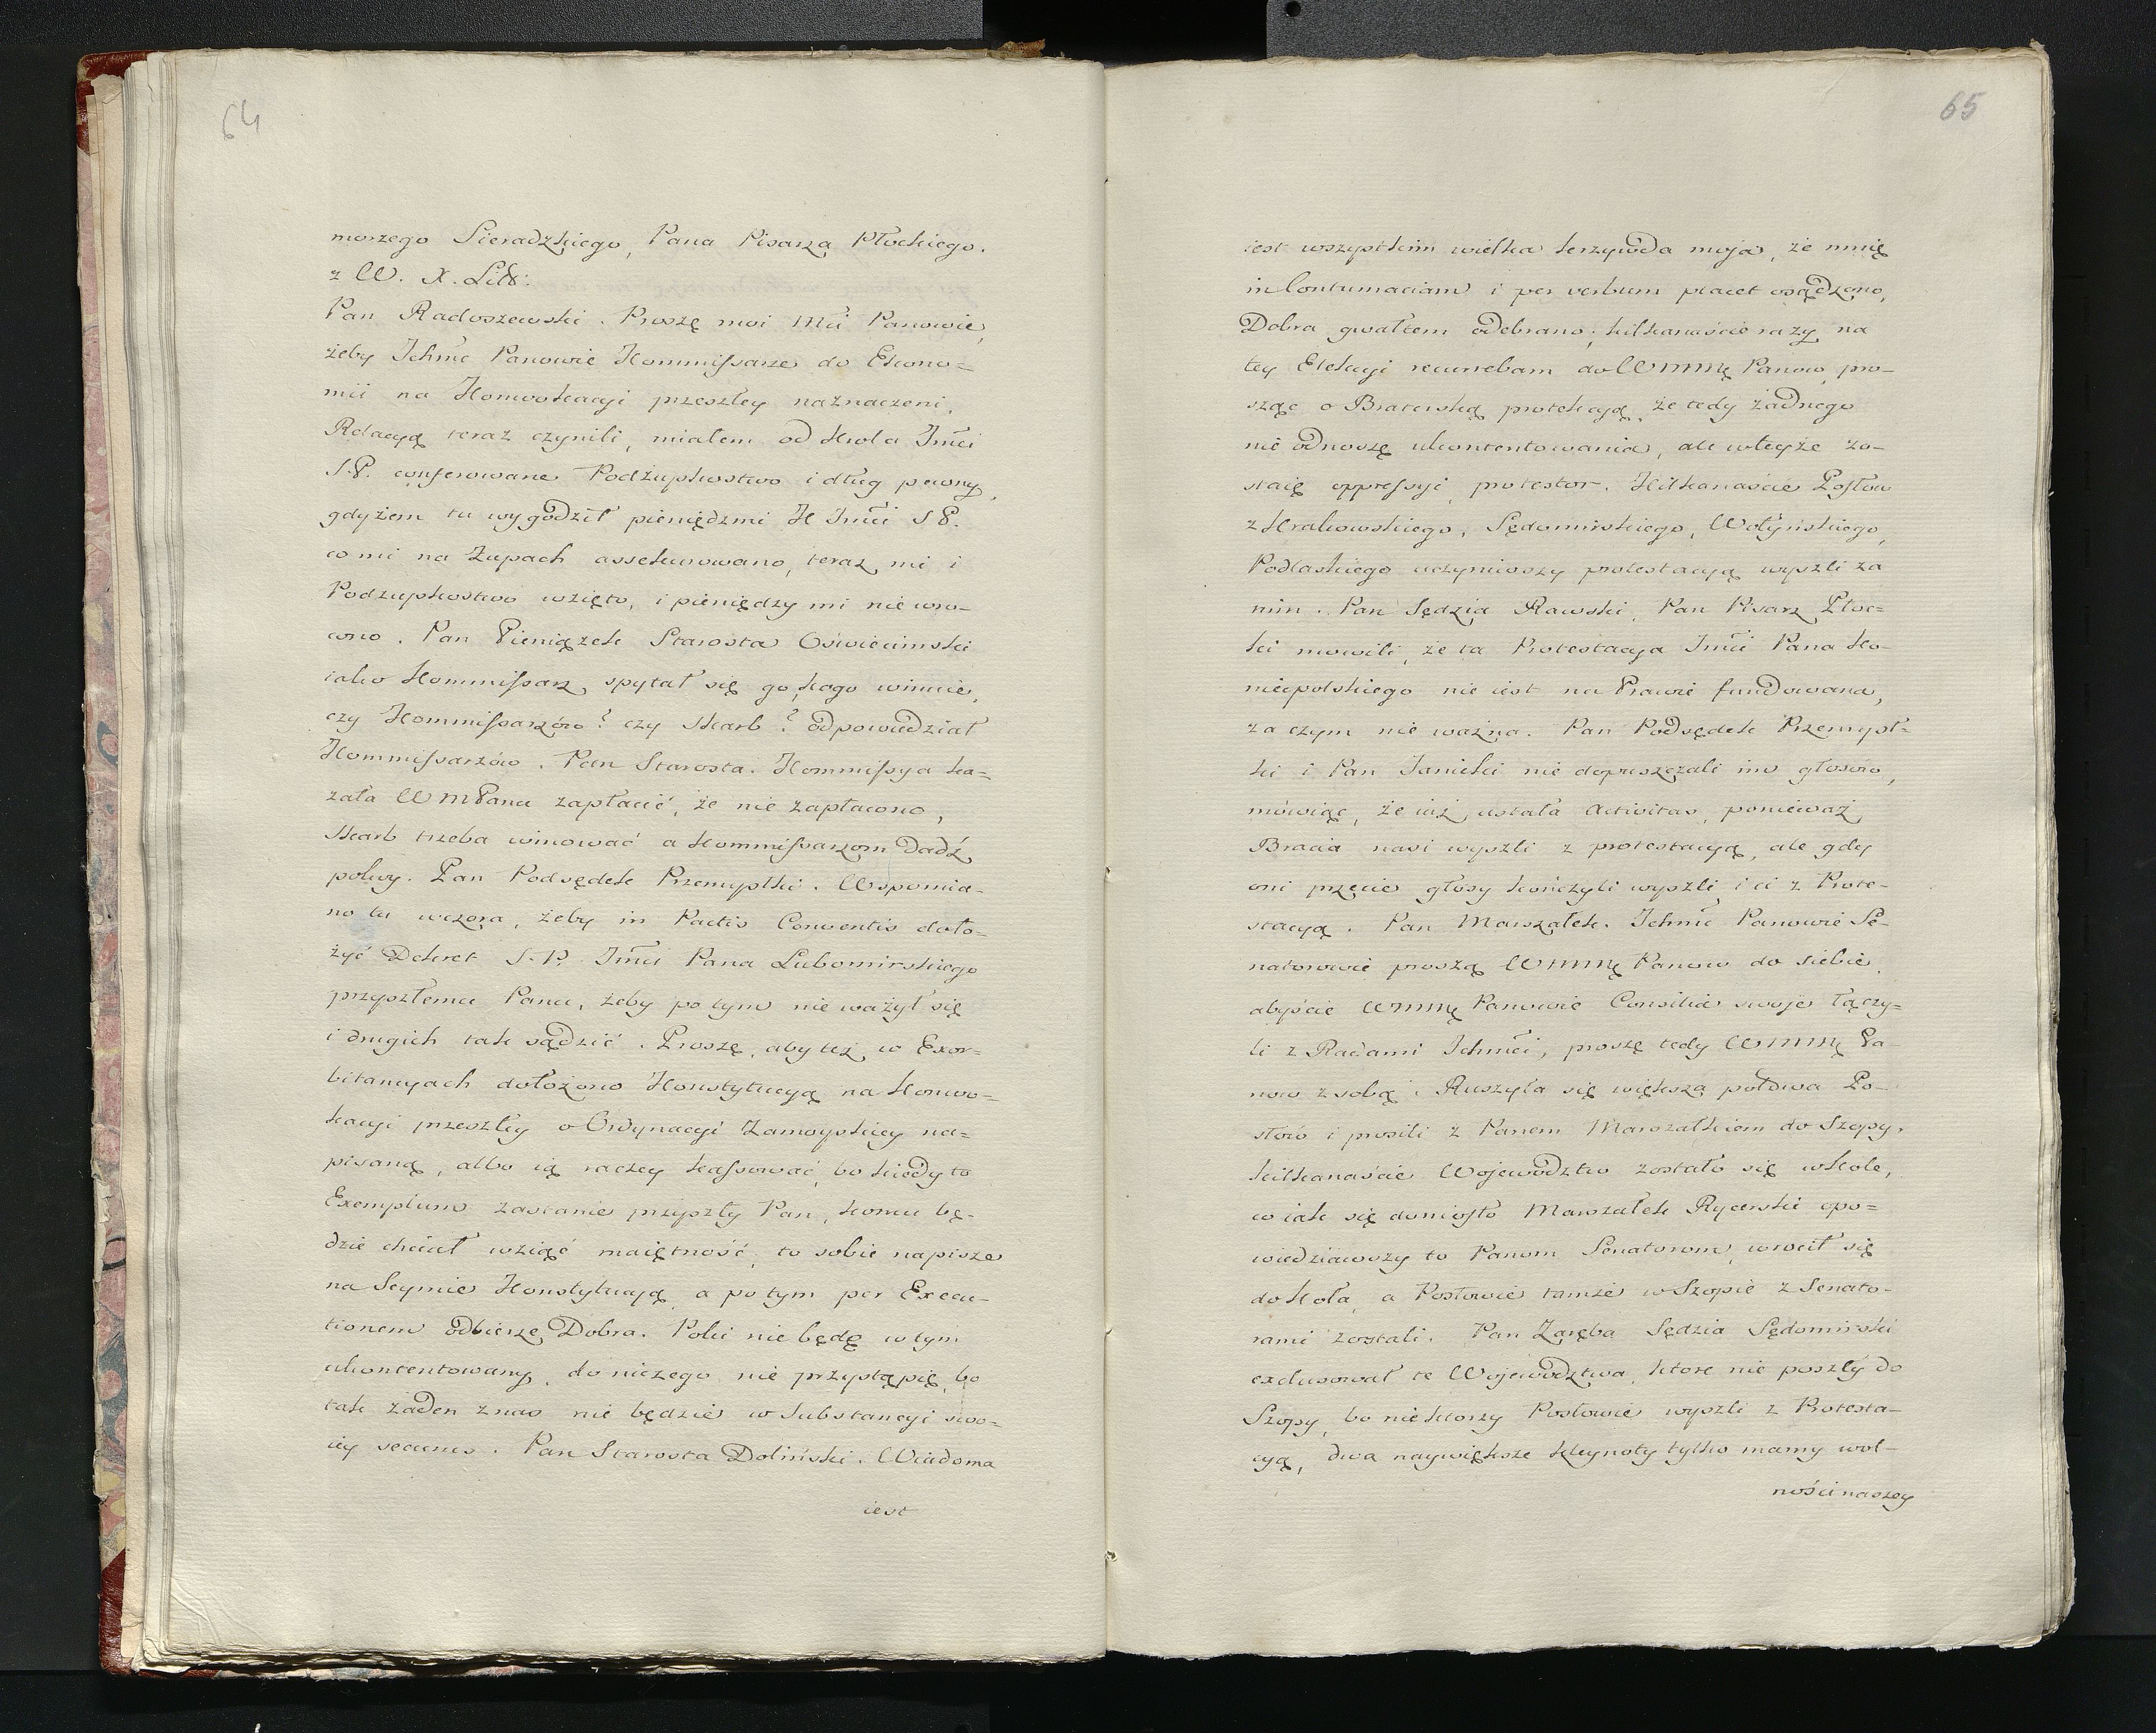 64
morzego Sieradzkiego, Pana Pisarza Płockiego.
z W. X. Litt:
Pan Radoszewski. Proszę moi Mći Panowie,
żeby Ichmć Panowie Kommissarze do Ekono=
mii na Konwokacyi przeszłey naznaczeni,
Relacyą teraz czynili, miałem od Krola Jmći
S.P. conferowane Podżupkostwo i dług pewny,
gdyżem tu wygodził pieniędzmi K Jmći S P.
co mi na Żupach assekurowano, teraz mi i
Podzupkostwo wzięto, i pieniędzy mi nie wro-
cono. Pan Pieniążek Starosta Oświecimski
iako Kommissarz, spytał się go, kogo winuie,
czy Kommissarzów? czy Skarb? odpowiedział
Kommissarzów. Pan Starosta. Kommissya ka=
zała WMPanu zapłacić, że nie zapłacono,
Skarb trzeba winować a Kommissarzom dadź
pokuy. Pan Podsędek Przemyslki. Wspomia-
no tu wczora, żeby in Pactis Conventis doło=
żyć Dekret S.P. Jmći Pana Lubomirskiego
przyszłemu Panu, żeby po tym nie ważył się
i drugich tak sądzić. Proszę, aby też w Exor=
bitancyach dołożono Konstytucyą na Konwo=
kacyi przeszłey o Ordynacyi Zamoyskiey na=
pisaną, albo ią raczey kassować, bo kiedy to
Exemplum zastanie przyszły Pan, komu bę-
dzie chciał wziąć maiętność, to sobie napisze
na Seymie Konstytucyą, a po tym per Execu-
tionem odbierze Dobra. Poki nie będę w tym
ukontentowany, do niczego nie przystąpię, bo
tak żaden z nas nie będzie w Substancyi swo=
iey securus. Pan Starosta Doliński. Wiadoma
iest
65
iest wszystkim wielka krzywda moja, że mnię
in Contumaciam i per verbum placet osądzono,
Dobra gwałtem odebrano; kilkanaście razy na
tey Elekcyi recurrebam do WMMę Panow, pro-
sząc o Braterską protekcyą, że tedy żadnego
nie odnoszę ukontentowania, ale w teyże zo-
staię oppressyi, protestor. Kilkanaście Posłow
z Krakowskiego, Sędomirskiego, Wołyńskiego,
Podlaskiego uczyniwszy protestacyą wyszli za
nim. Pan Sędzia Rawski, Pan Pisarz Płoc=
ki mowili, że ta Protestacya Jmći Pana Ko-
niecpolskiego nie iest na Prawie fundowana,
za czym nie ważna. Pan Podsędek Przemysl=
ki i Pan Janicki nie dopuszczali im głosow,
mówiąc, że iuż ustała Activitas, ponieważ
Bracia nasi wyszli z protestacyą, ale gdy
oni przecie głosy kończyli wyszli i ci z Prote-
stacyą. Pan Marszałek. Ichmć Panowie Se-
natorowie proszą WMMę Panow do siebie,
abyście WMMę Panowie Consilia swoje łączy=
li z Radami Ichmći, proszę tedy WMMę Pa-
now z sobą. Ruszyła się większa połowa Po-
słow i prosili z Panem Marszałkiem do Szopy,
kilkanaście Wojewodztw zostało się w Kole,
co iak się doniosło Marszałek Rycerski opo=
wiedziawszy to Panom Senatorom, wrocił się
do Koła, a Posłowie tamże w Szopie z Senato-
rami zostali. Pan Zaręba Sędzia Sędomirski
exclusował te Wojewodztwa, ktore nie poszły do
Szopy, bo niektorzy Posłowie wyszli z Protesta-
cyą, dwa naywiększe kleynoty tylko mamy wol-
ności naszey